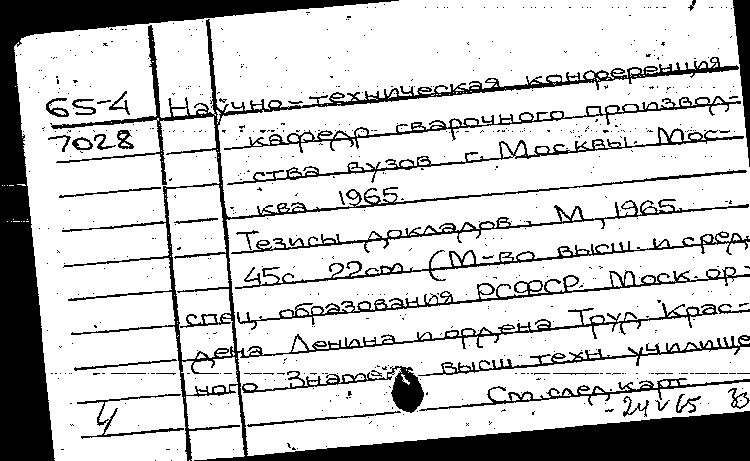 65-4 Научно-техническая конференция
7028 кафедр сварочного производ-
ства вузов г. Москвы. Мос-
ква. 1965.
Тезисы докладов. М., 1965.
45с. 22см. (М-во высш. и сред.
спец. образования РСФСР. Моск. ор-
дена Ленина и ордена Труд. Крас-
ного Знамени высш. техн. училище
См. след. карт.
4 -24 V 65